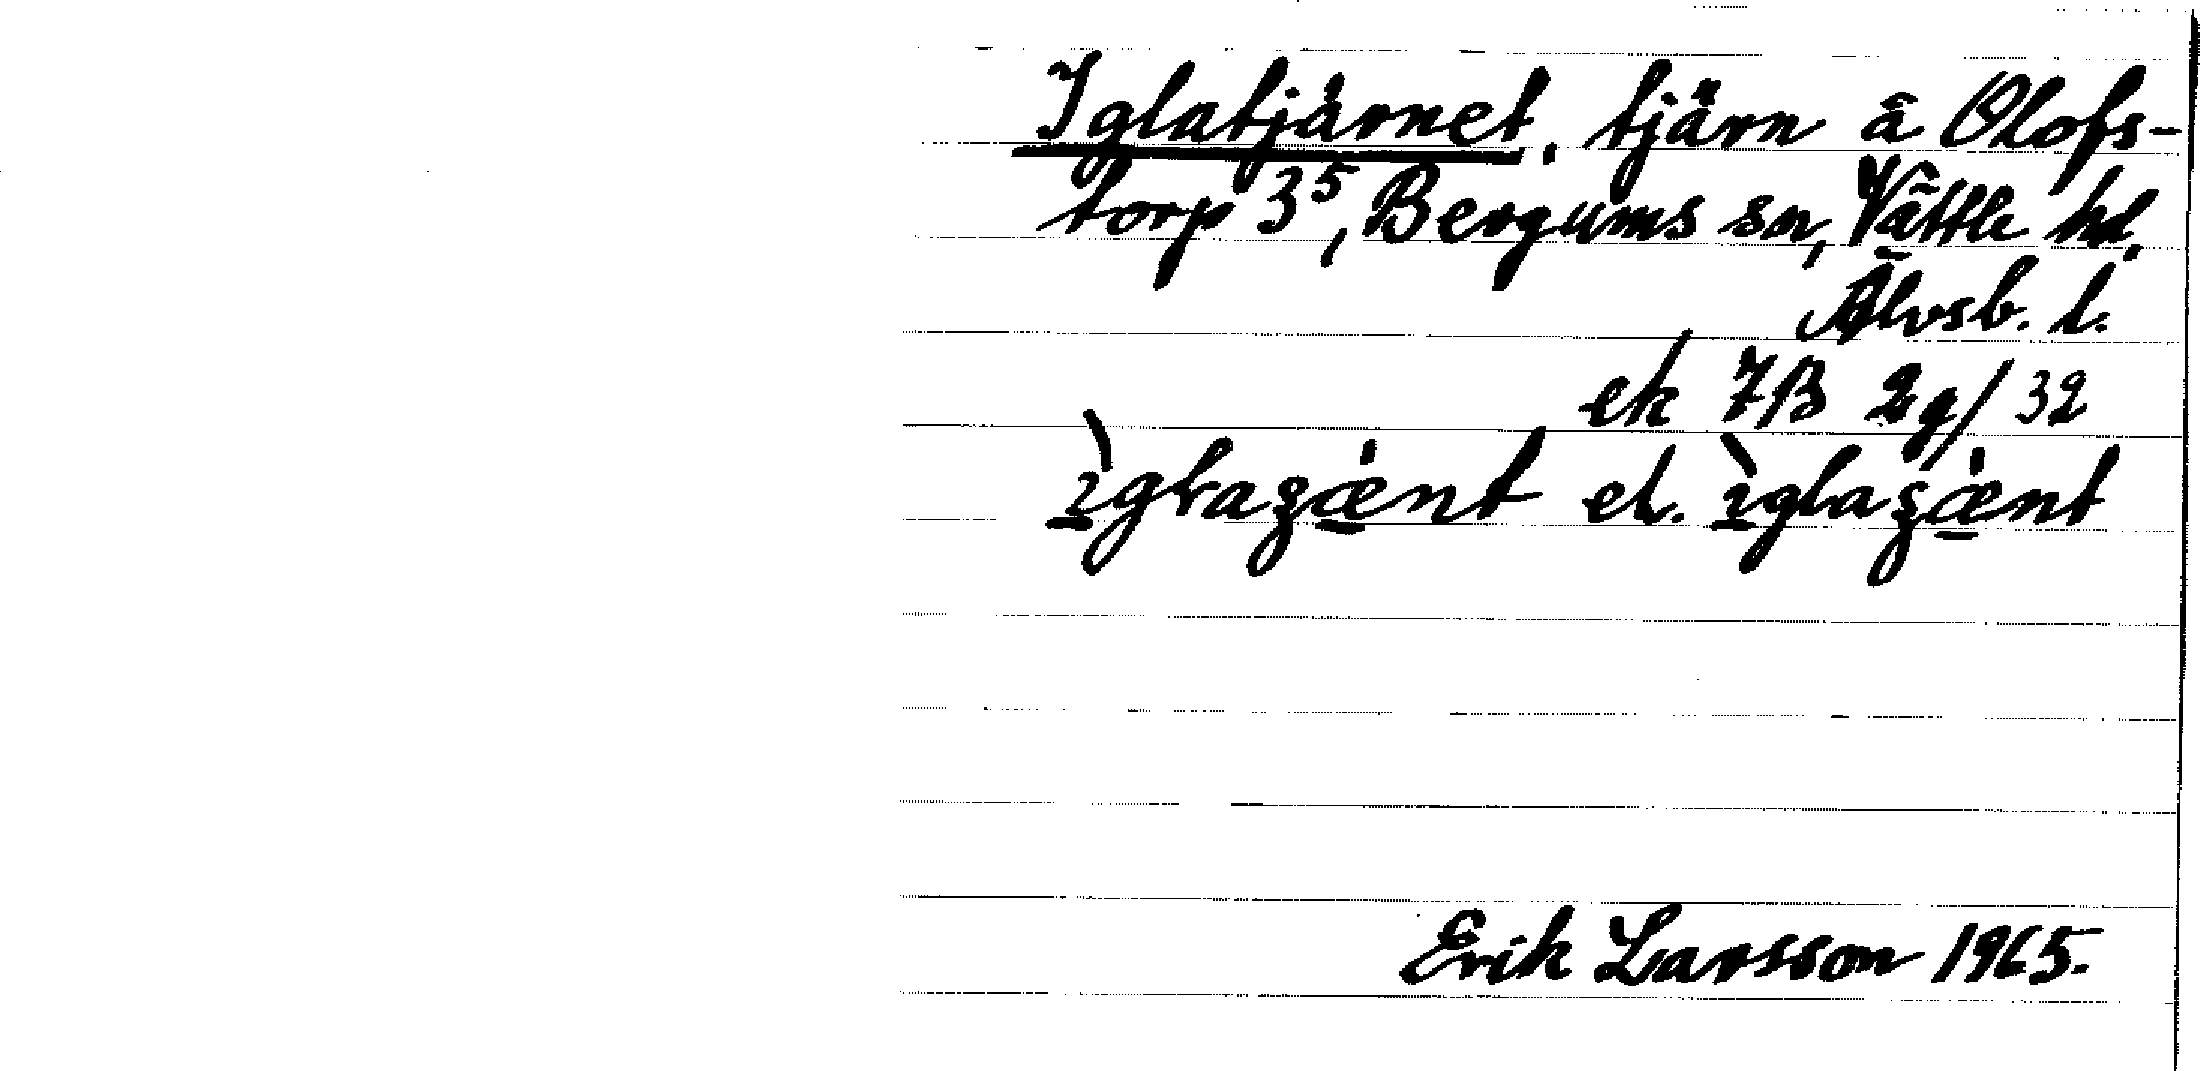 Iglatjärnet, tjärn å Olofs-
torp 3⁵, Bergums sn, Vättle hd,
Älvsb. l.
ek 7B 2g/32
el.
Erik Larsson 1965.